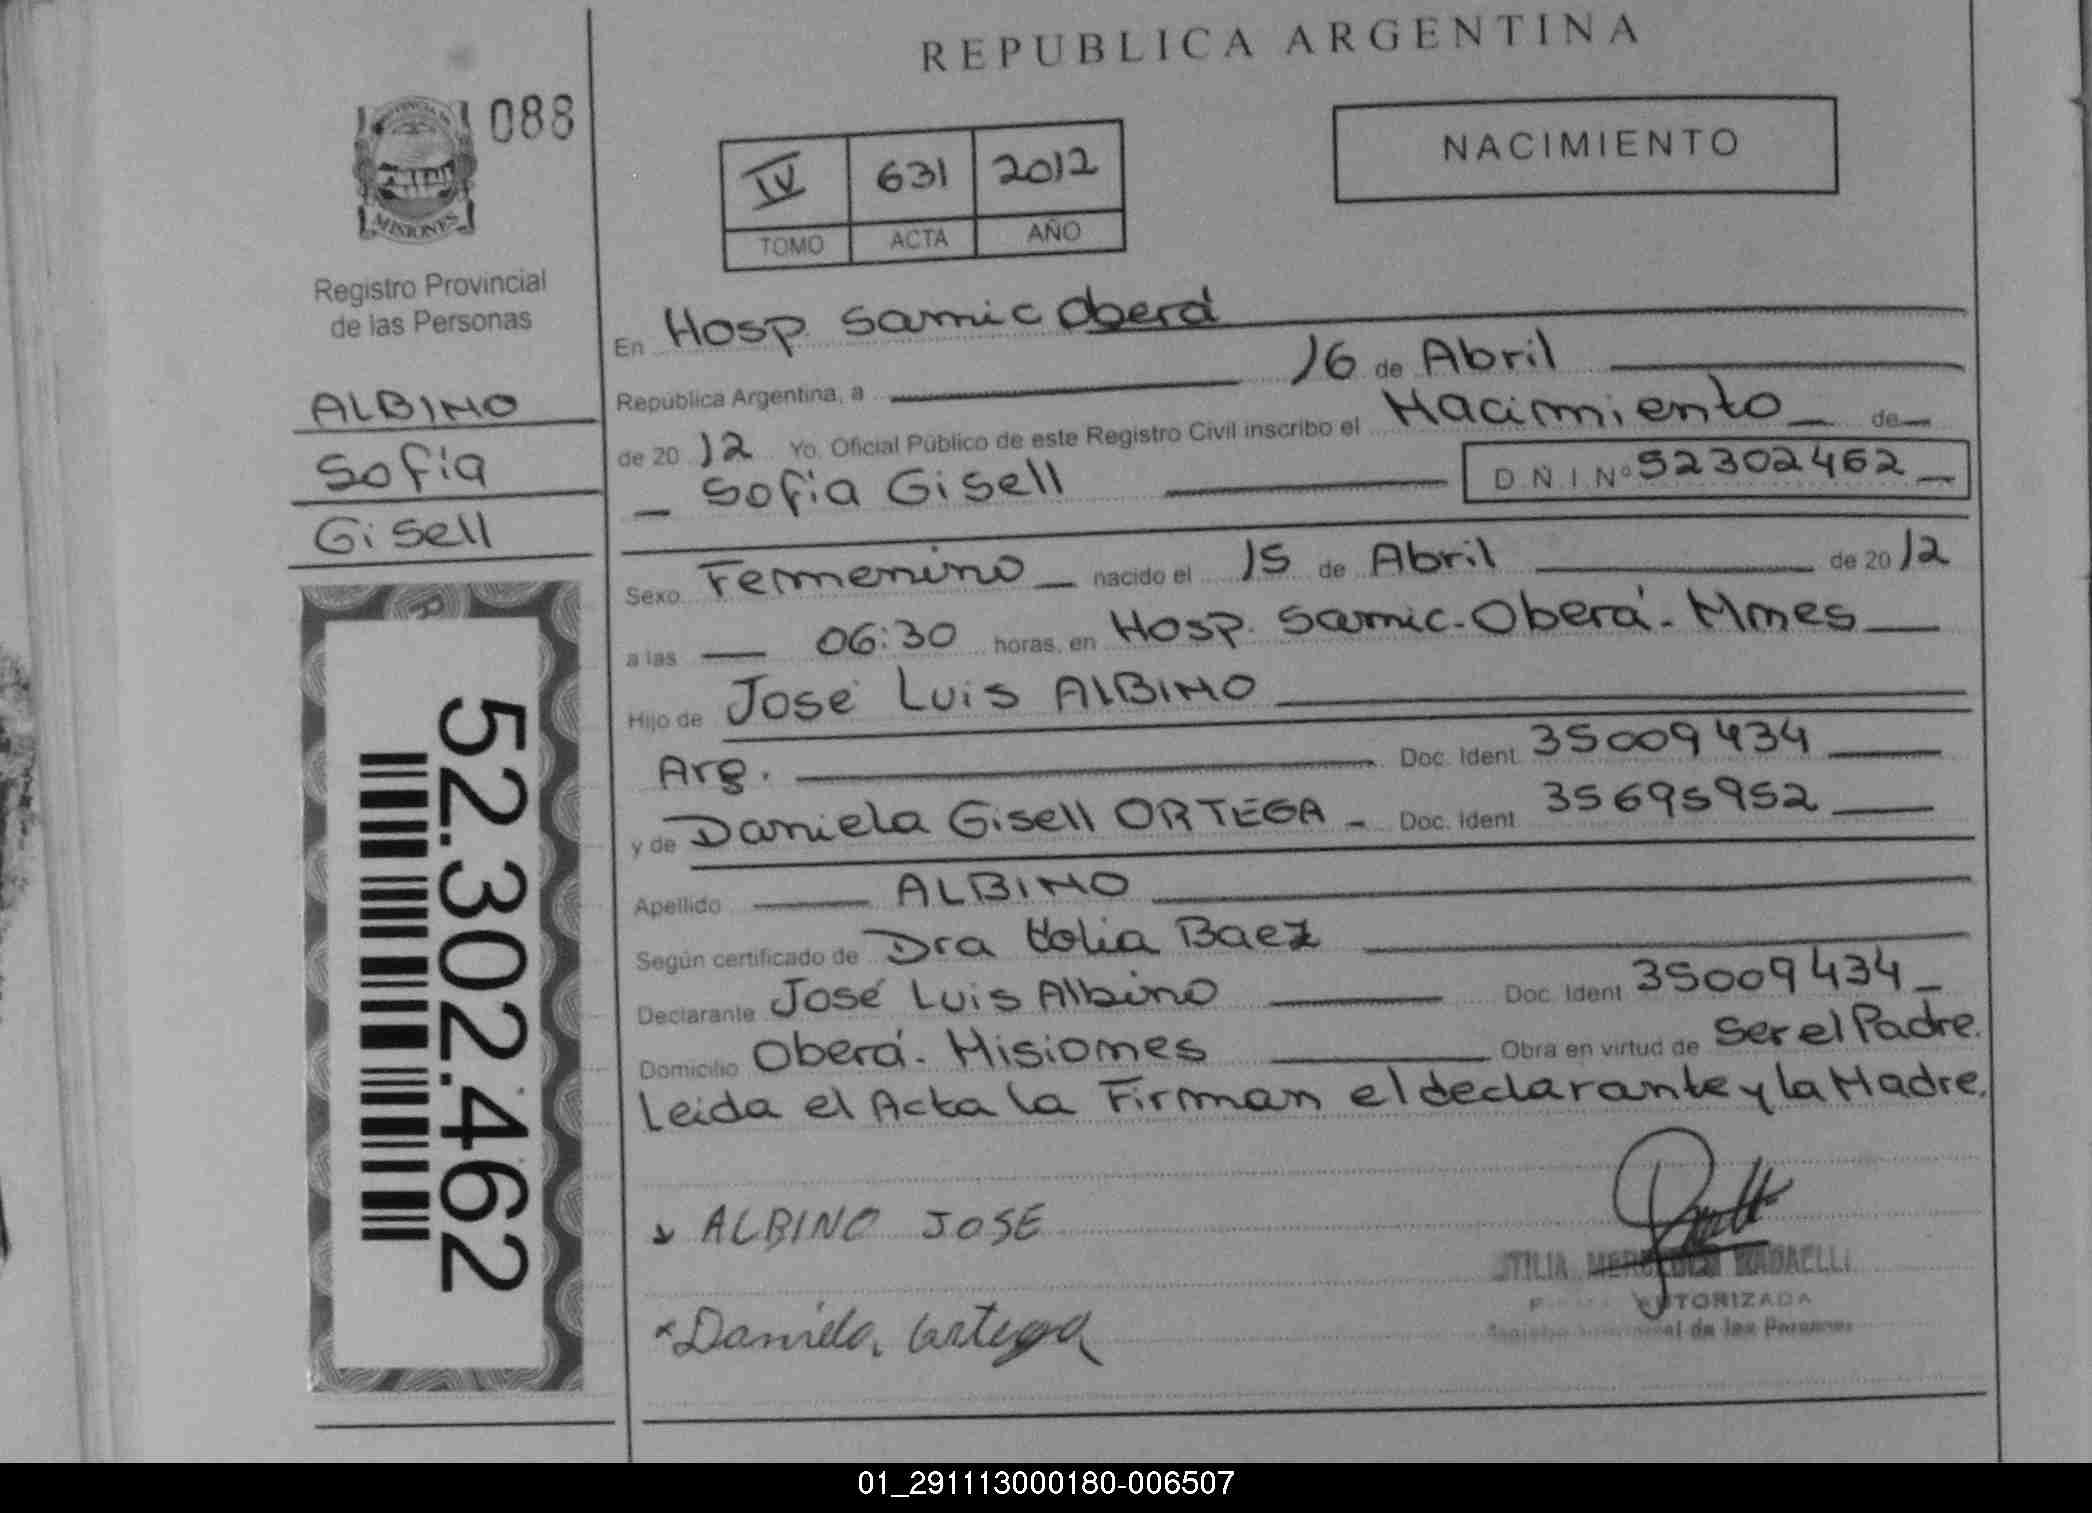 REPUBLICA ARGENTINA
088
PROVINCIA DE
MISIONES
NACIMIENTO
IV 631 2012
TOMO ACTA AÑO
Registro Provincial
de las Personas
ALBINO
Sofia
Gisell
52.302.462
En Hosp Samic Oberá
Republica Argentina, a 16 de Abril
de 20 12 Yo. Oficial Público de este Registro Civil inscribo el Nacimiento de
Sofia Gisell D N I Nº 52302462
Sexo Femenino nacido el 15 de Abril de 20 12
a las 06:30 horas, en Hosp. Samic. Oberá. Mnes
Hijo de José Luis ALBINO
Arg. Doc. Ident 35009434
y de Daniela Gisell ORTEGA Doc. Ident 35695952
Apellido ALBINO
Según certificado de Dra Baez
Declarante José Luis Albino Doc. Ident 35009434
Domicilio Oberá. Misiones Obra en virtud de Ser el Padre.
Leida el Acta la Firman el declarante y la Madre.
ALBINO JOSE
Daniela Ortega
RADAELLI
AUTORIZADA
de las Personas
01_291113000180-006507